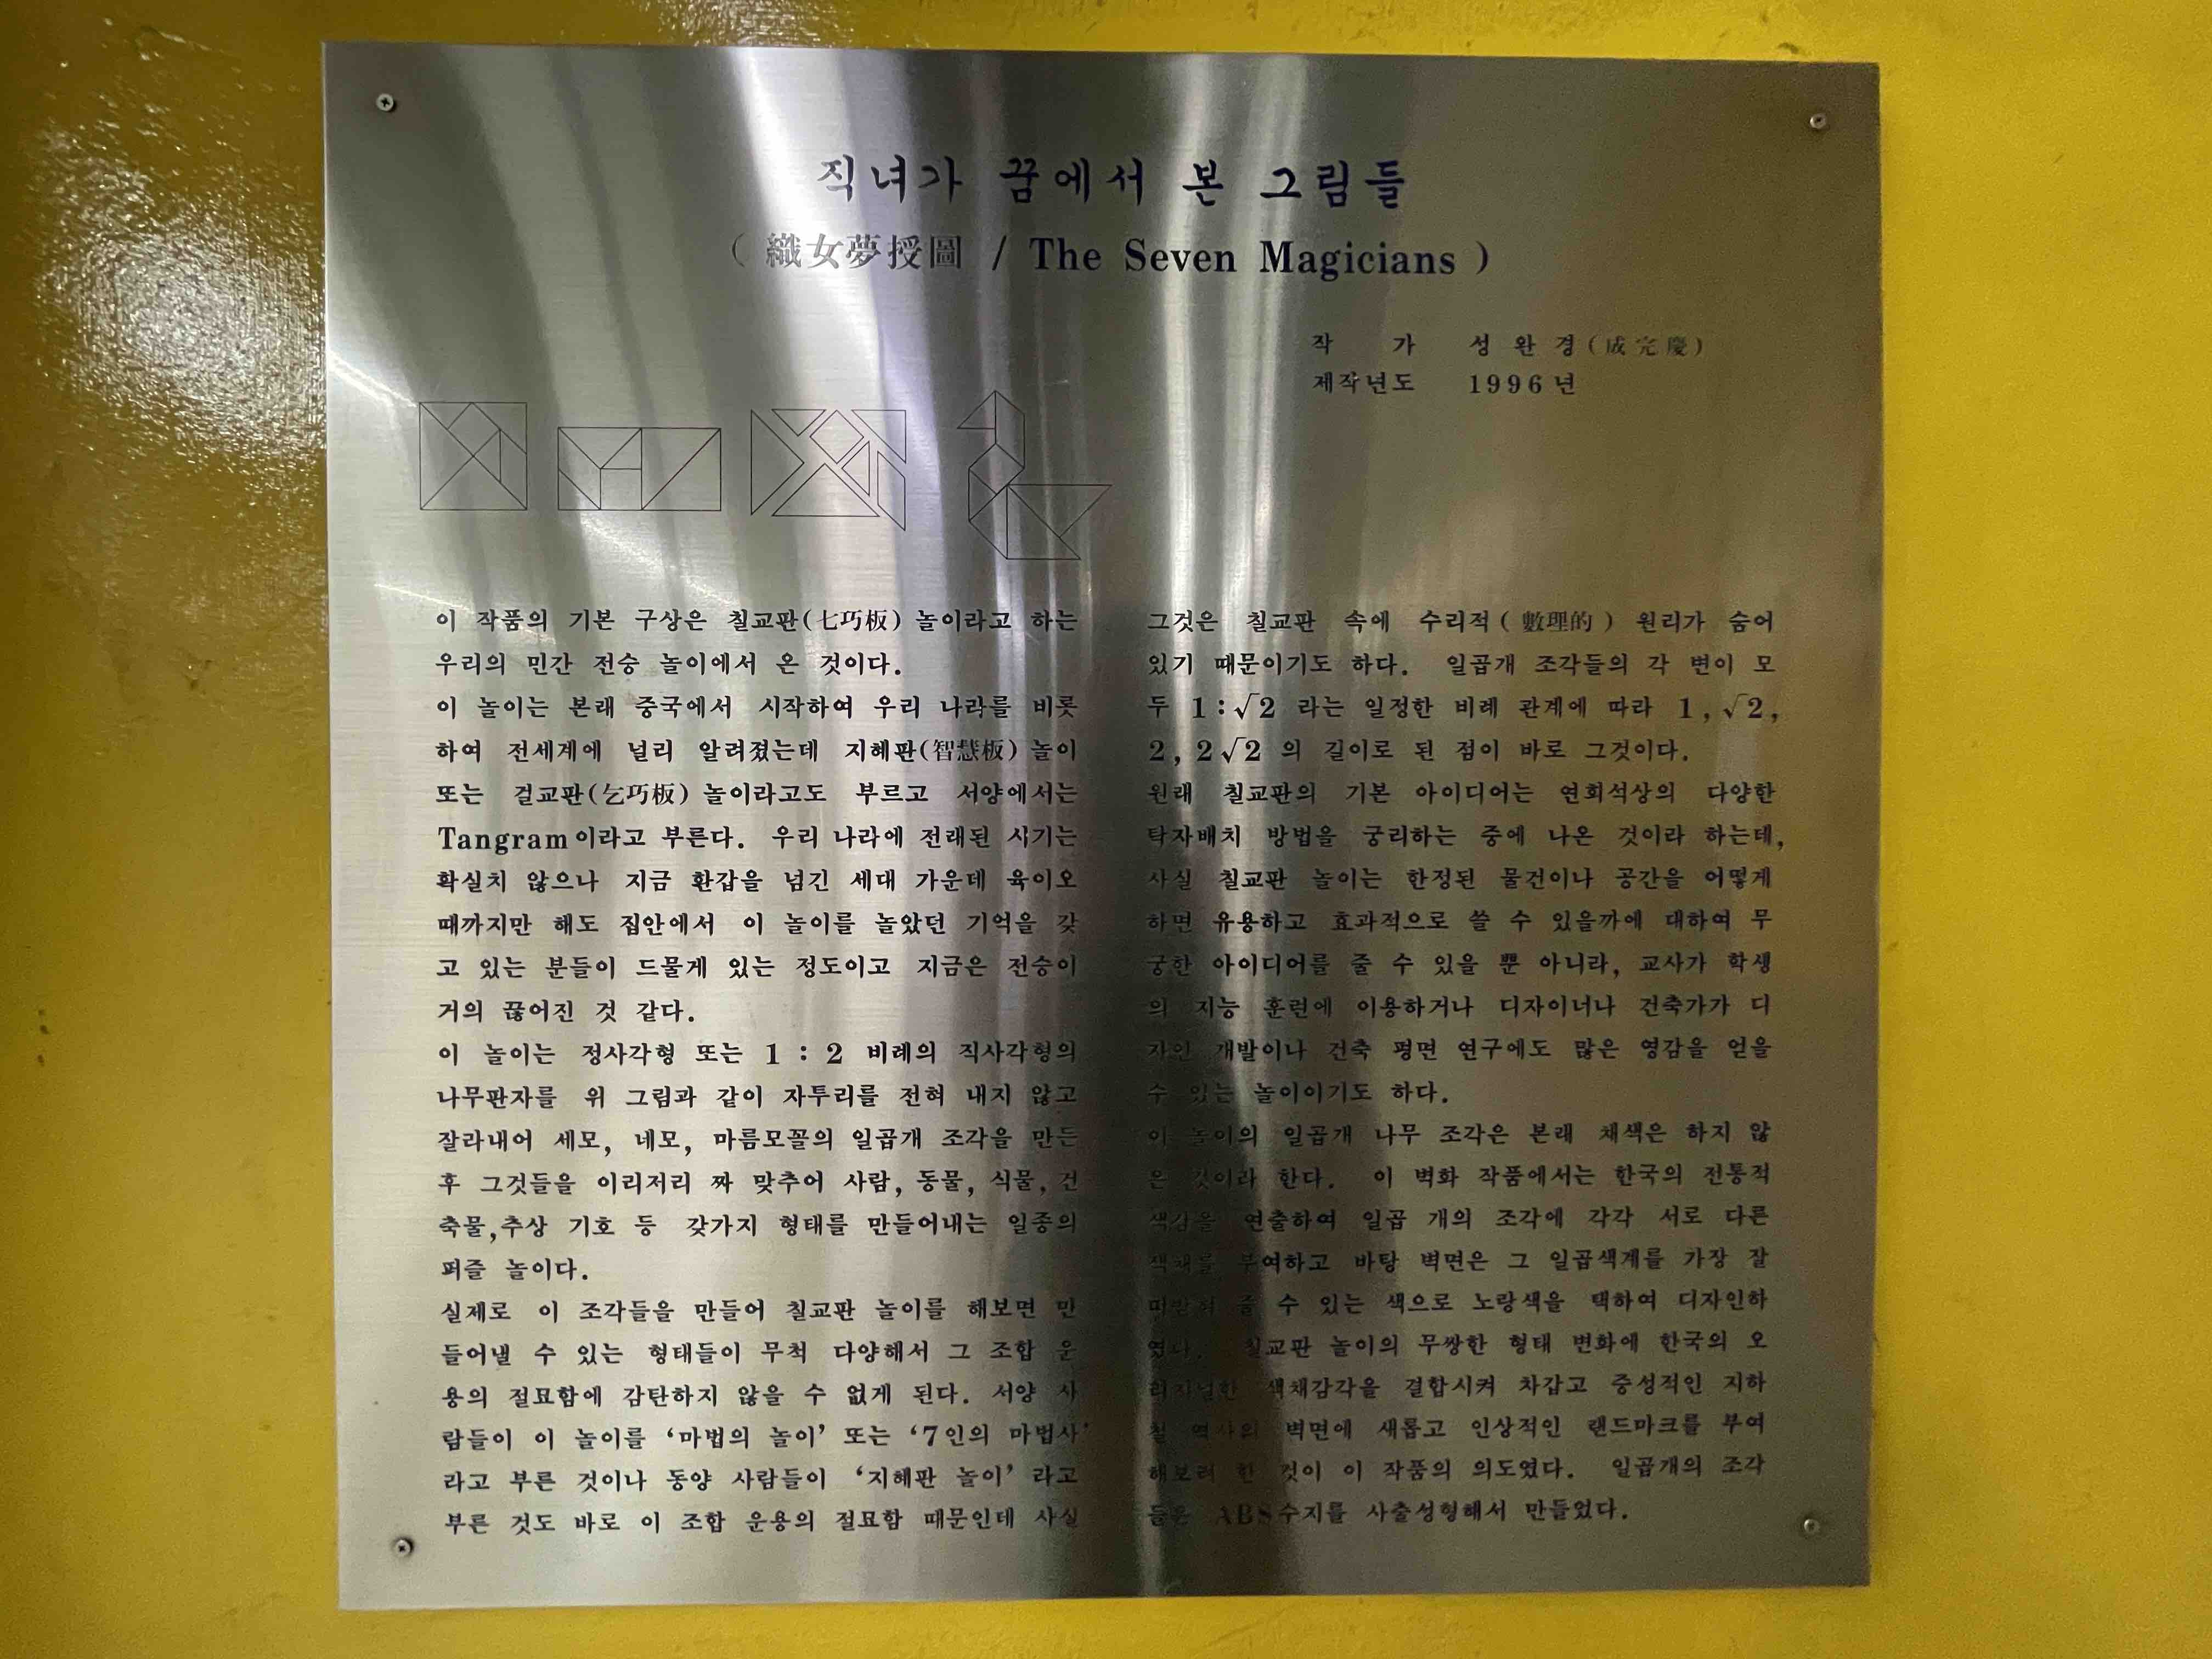 직녀가 꿈에서 본 그림들
( 織女夢授圖 / The Seven Magicians )
작 가 성 완 경 (成完慶)
제작년도 1996년
이 작품의 기본 구상은 칠교판(七巧板) 놀이라고 하는
우리의 민간 전승 놀이에서 온 것이다.
이 놀이는 본래 중국에서 시작하여 우리 나라를 비롯
하여 전세계에 널리 알려졌는데 지혜판(智慧板) 놀이
또는 걸교판(乞巧板) 놀이라고도 부르고 서양에서는
Tangram이라고 부른다. 우리 나라에 전래된 시기는
확실치 않으나 지금 환갑을 넘긴 세대 가운데 육이오
때까지만 해도 집안에서 이 놀이를 놀았던 기억을 갖
고 있는 분들이 드물게 있는 정도이고 지금은 전승이
거의 끊어진 것 같다.
이 놀이는 정사각형 또는 1 : 2 비례의 직사각형의
나무판자를 위 그림과 같이 자투리를 전혀 내지 않고
잘라내어 세모, 네모, 마름모꼴의 일곱개 조각을 만든
후 그것들을 이리저리 짜 맞추어 사람, 동물, 식물, 건
축물,추상 기호 등 갖가지 형태를 만들어내는 일종의
퍼즐 놀이다.
실제로 이 조각들을 만들어 칠교판 놀이를 해보면 만
들어낼 수 있는 형태들이 무척 다양해서 그 조합 운
용의 절묘함에 감탄하지 않을 수 없게 된다. 서양 사
람들이 이 놀이를 ‘마법의 놀이’ 또는 ‘7인의 마법사’
라고 부른 것이나 동양 사람들이 ‘지혜판 놀이’ 라고
부른 것도 바로 이 조합 운용의 절묘함 때문인데 사실
그것은 칠교판 속에 수리적( 數理的 ) 원리가 숨어
있기 때문이기도 하다. 일곱개 조각들의 각 변이 모
두 1:√2 라는 일정한 비례 관계에 따라 1, √2,
2, 2√2 의 길이로 된 점이 바로 그것이다.
원래 칠교판의 기본 아이디어는 연회석상의 다양한
탁자배치 방법을 궁리하는 중에 나온 것이라 하는데,
사실 칠교판 놀이는 한정된 물건이나 공간을 어떻게
하면 유용하고 효과적으로 쓸 수 있을까에 대하여 무
궁한 아이디어를 줄 수 있을 뿐 아니라, 교사가 학생
의 지능 훈련에 이용하거나 디자이너나 건축가가 디
자인 개발이나 건축 평면 연구에도 많은 영감을 얻을
수 있는 놀이이기도 하다.
이 놀이의 일곱개 나무 조각은 본래 채색은 하지 않
은 것이라 한다. 이 벽화 작품에서는 한국의 전통적
색감을 연출하여 일곱 개의 조각에 각각 서로 다른
색채를 부여하고 바탕 벽면은 그 일곱색계를 가장 잘
떠받쳐 줄 수 있는 색으로 노랑색을 택하여 디자인하
였다. 칠교판 놀이의 무쌍한 형태 변화에 한국의 오
리지널한 색채감각을 결합시켜 차갑고 중성적인 지하
철 역사의 벽면에 새롭고 인상적인 랜드마크를 부여
해보려 한 것이 이 작품의 의도였다. 일곱개의 조각
들은 ABS수지를 사출성형해서 만들었다.